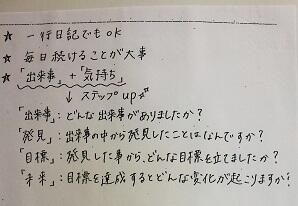 ★ 一行日記でもOK
★ 毎日続けることが大事
★ 「出来事」+「気持ち」
↓ ステップup
「出来事」：どんな出来事がありましたか？
「発見」：出来事の中から発見したことはなんですか？
「目標」：発見した事から、どんな目標を立てましたか？
「未来」：目標を達成するとどんな変化が起こりますか？